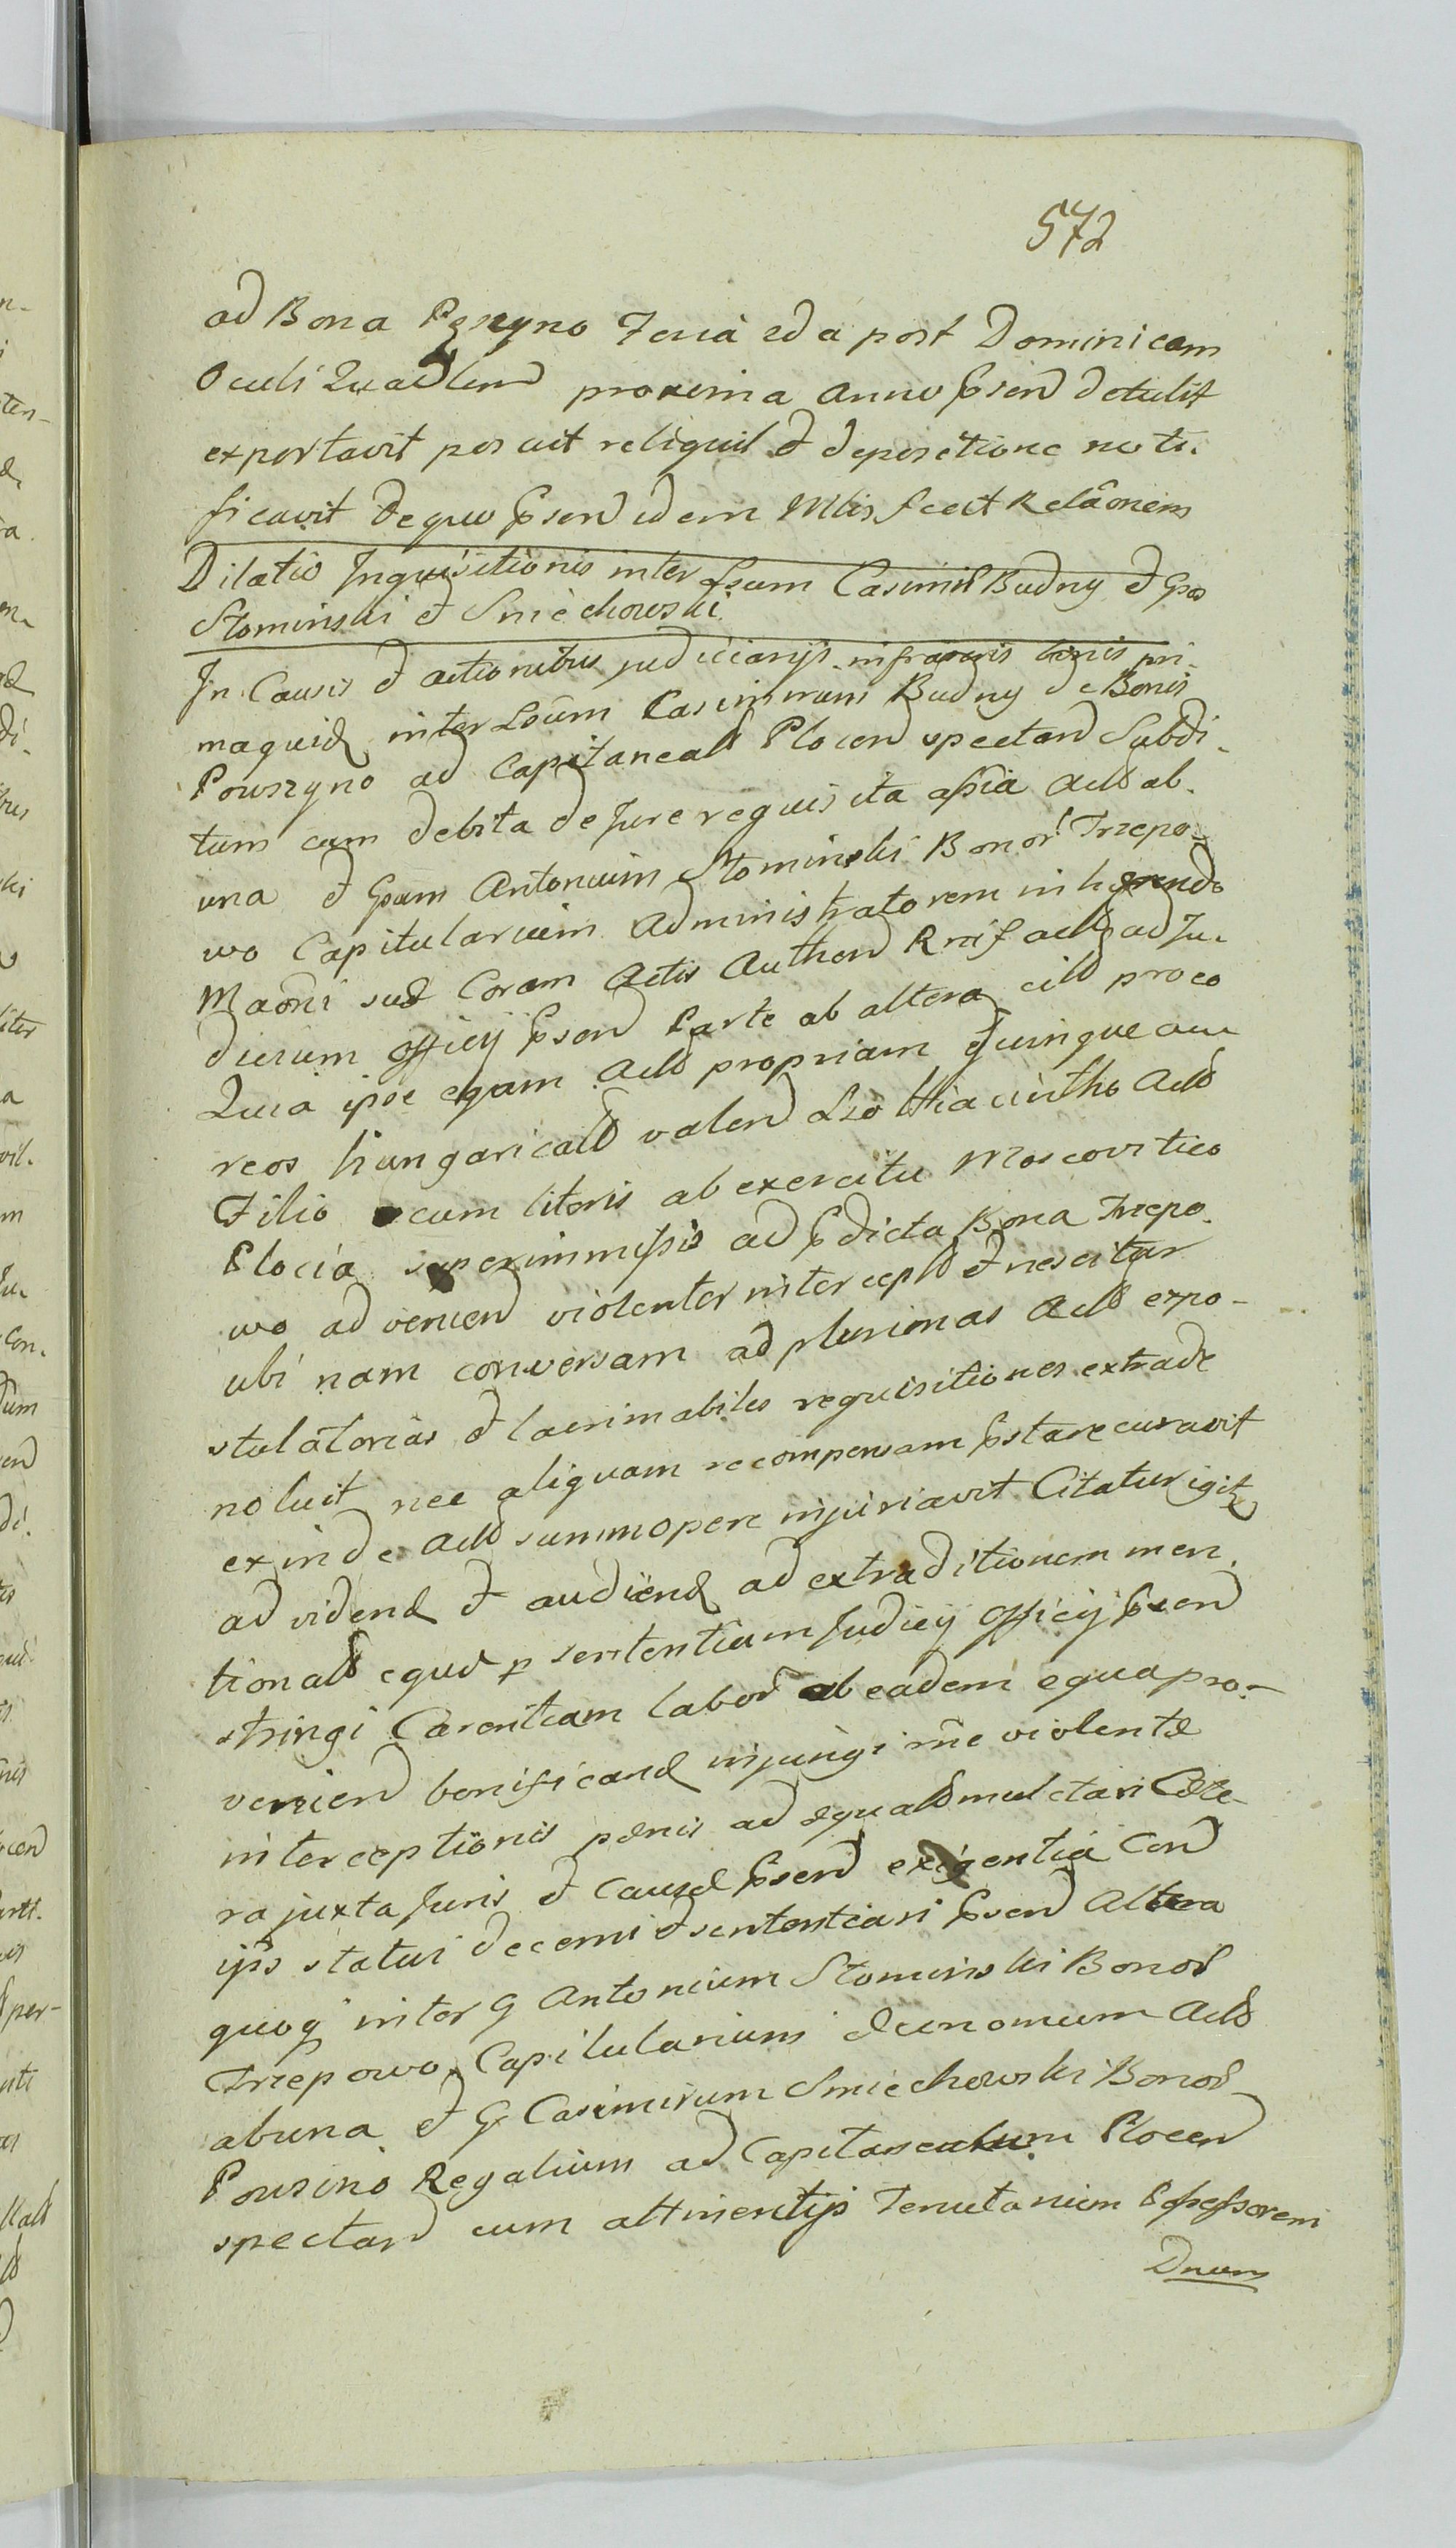 572
ad Bona Pszyno Feria 2da post Dominicam
Oculi Quadlem proxima Anno psen detulit
exportavit posuit reliquit et depositione noti-
ficavit de quo psen idem Mlis fecit Relâonem
Dilatio Inquisitionis inter Lsum Casimir Budny et Gsos
Stominski et Smiechowski
In Causis et actionibus judiciarijs infrascris binis pri-
maquid inter Lsum Casimirum Budny de Bonis
Pouszyno ad Capitaneatt Plocen spectan Subdi-
tum cum debita de Jure requisita assia Actt ab
una et Gsum Antonium Stominski Bonor Trzepo-
wo Capitularium Administratorem inhærendo
Maoni suæ Coram Actis Authen Rnif actt ad Ju-
dicium officij psen Parte ab altera citt pro eo
Quia ipse equam Actt propriam quinque au-
reos hungaricatt valen Lso Hiacintho Actt
Filio cum literis ab exercitu Moscovitico
Plocia superimmissis ad pdicta Bona Trzepo-
wo advenien violenter intercepit et nescitur
ubi nam conversam ad plurimas Actt expo-
stulatorias et lacrimabiles requisitiones extrade
noluit nec aliquam recompensam pstare curavit
exinde Actt summopere injuriavit Citatur igitr
ad videnδ et audienδ ad extraditionem men-
tionatt equæ p sententiam Judicij Officij psen
stringi Carentiam labor ab eadem equa pro-
venien bonificanδ injungi rne violentæ
interceptionis pænis adæquatt mulctari Cæte-
ra juxta Juris et Causæ psen exigentia Con
ijs statui decerni et sententiari psen Altera
quoq inter G Antonium Stominski Bonor
Trzepowo Capitularium Œconomum Actt
ab una et G Casimirum Smiechowski Bonor
Pousino Regalium ad Capitaneatum Plocen
spectan cum attinentijs Tenutarium Possessorem
Dnum